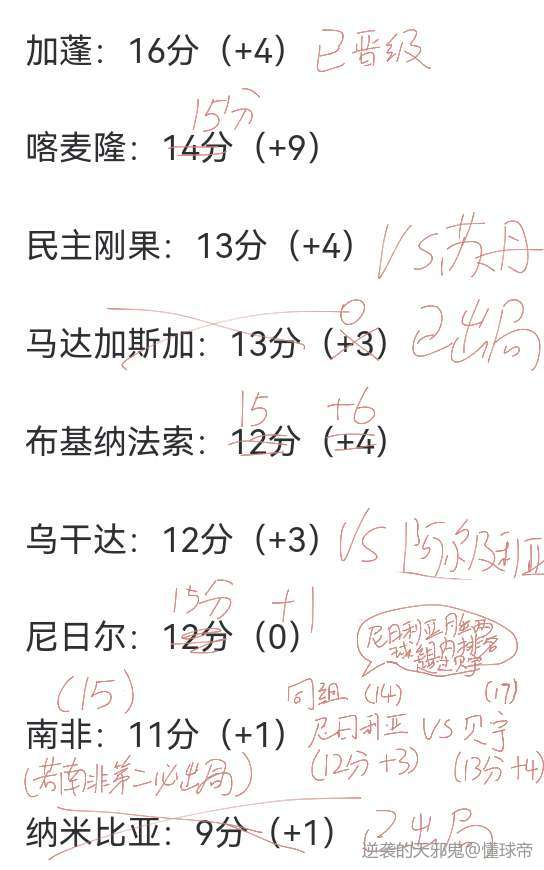 加蓬：16分（+4）已晋级
15分
喀麦隆：14分（+9）
民主刚果：13分（+4）VS苏丹
0
马达加斯加：13分（+3）已出局
15 +6
布基纳法索：12分（+4）
乌干达：12分（+3）VS 阿尔及利亚
15分 +1
尼日尔：12分（0）
尼日利亚月胜两
球组内排名
超过贝宁
（15） 同组（14）（17）
南非：11分（+1）尼日利亚 VS 贝宁
（若南非第二必出局）（12分+3）（13分+4）
纳米比亚：9分（+1）已出局
逆袭的天邪鬼@懂球帝